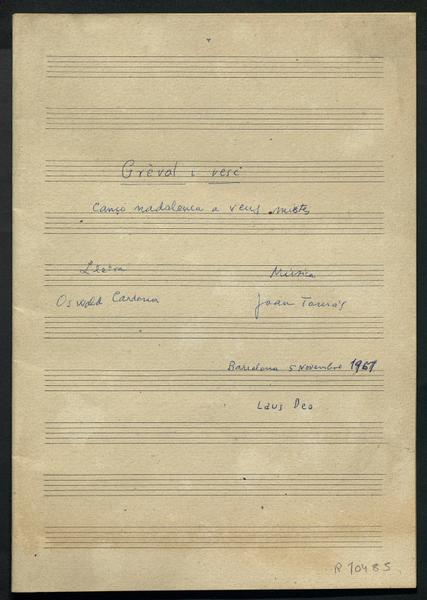 Grèvol i vesc
Cançó nadalenca a veus mixtes
Lletra
Música
Osvald Cardona
Joan Tomàs
Barcelona 5 Novembre 1961
Laus Deo
R 10485